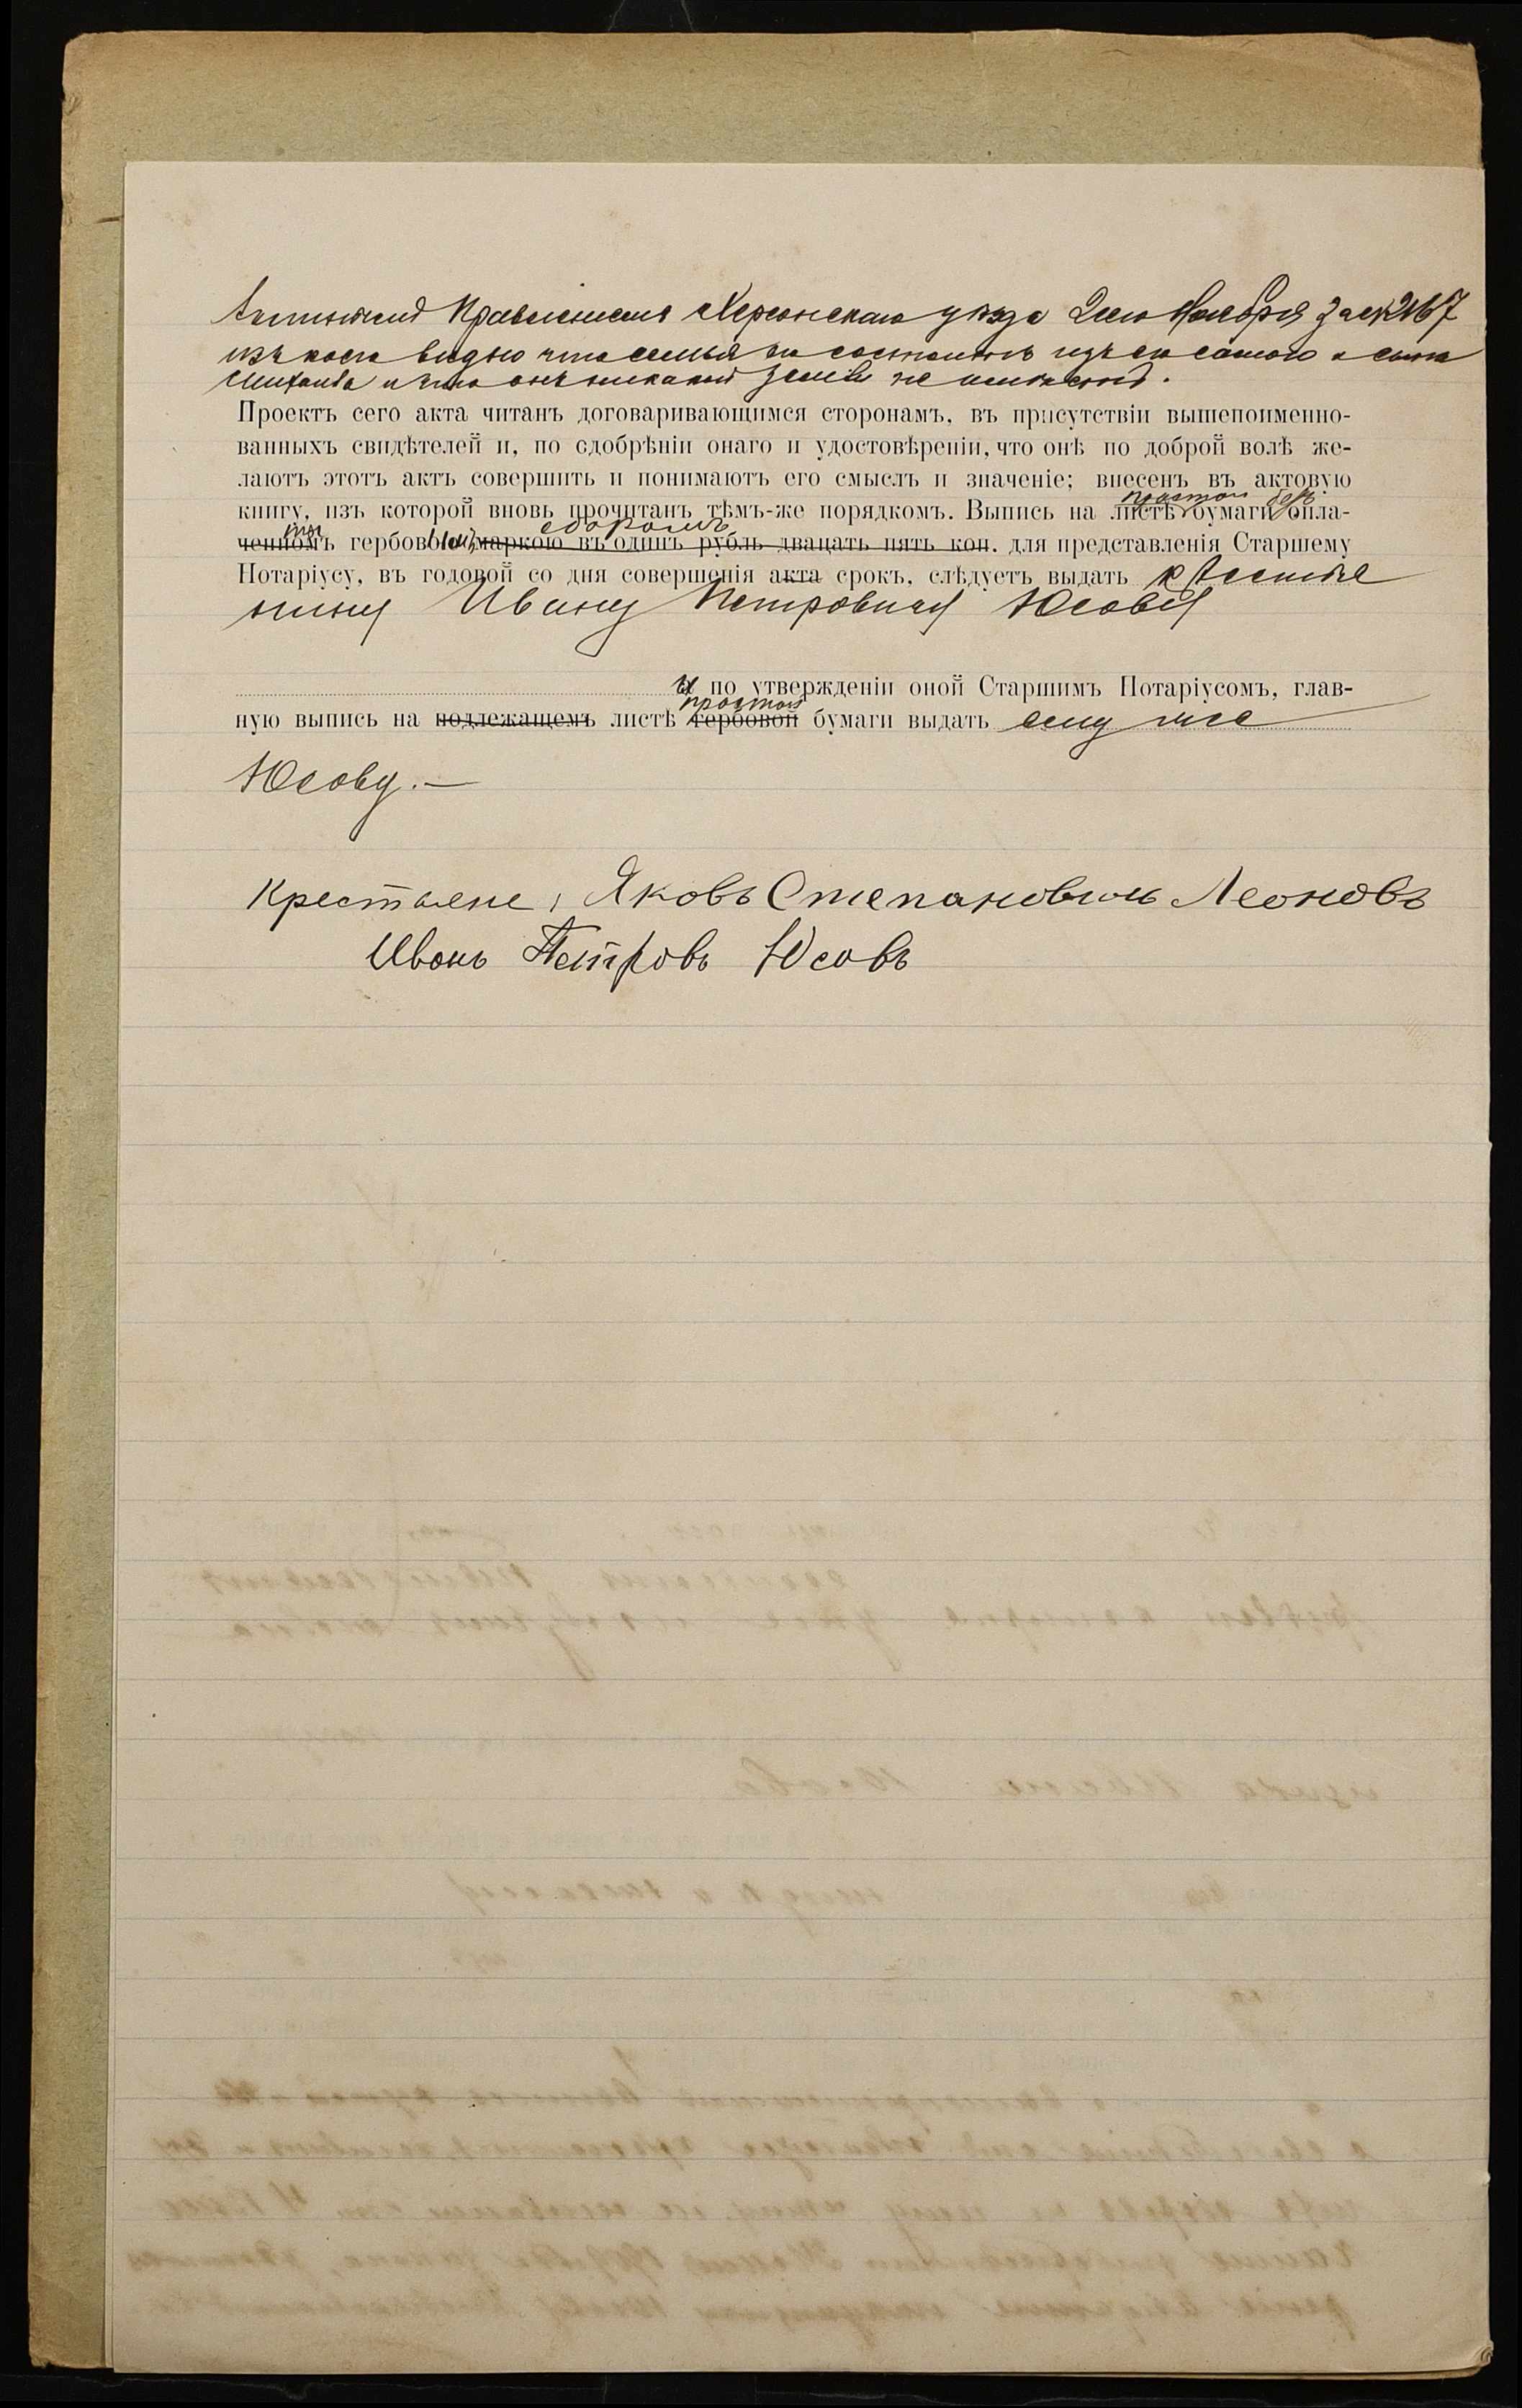 Правленіемъ Херсонскаго уѣзда 2го Ноября за № 2167
изъ коего видно что семья его состоитъ изъ его самого и сына
Михаила и что онъ никакой земли не имѣетъ.
Проектъ сего акта читанъ договаривающимся сторонамъ, въ присутствіи вышепоименно-
ванныхъ свидѣтелей и, по одобрѣніи онаго и удостовѣреніи, что онѣ по доброй волѣ же-
лаютъ этотъ актъ совершить и понимаютъ его смыслъ и значеніе; внесенъ въ актовую
простой безъ
книгу, изъ которой вновь прочитанъ тѣмъ-же порядкомъ. Выпись на листѣ бумаги опла-
сборомъ
ченномъ гербовымъ маркою въ одинъ рубль двацать пять коп. для представленія Старшему
Нотаріусу, въ годовой со дня совершенія акта срокъ, слѣдуетъ выдать крестья
нину Ивану Петровичу Юсову
и по утвержденіи оной Старшимъ Нотаріусомъ, глав-
простой
ную выпись на подлежащемъ листѣ гербовой бумаги выдать ему же
Юсову.—
Крестьяне, Яковъ Степановичъ Леоновъ
Иванъ Петровъ Юсовъ